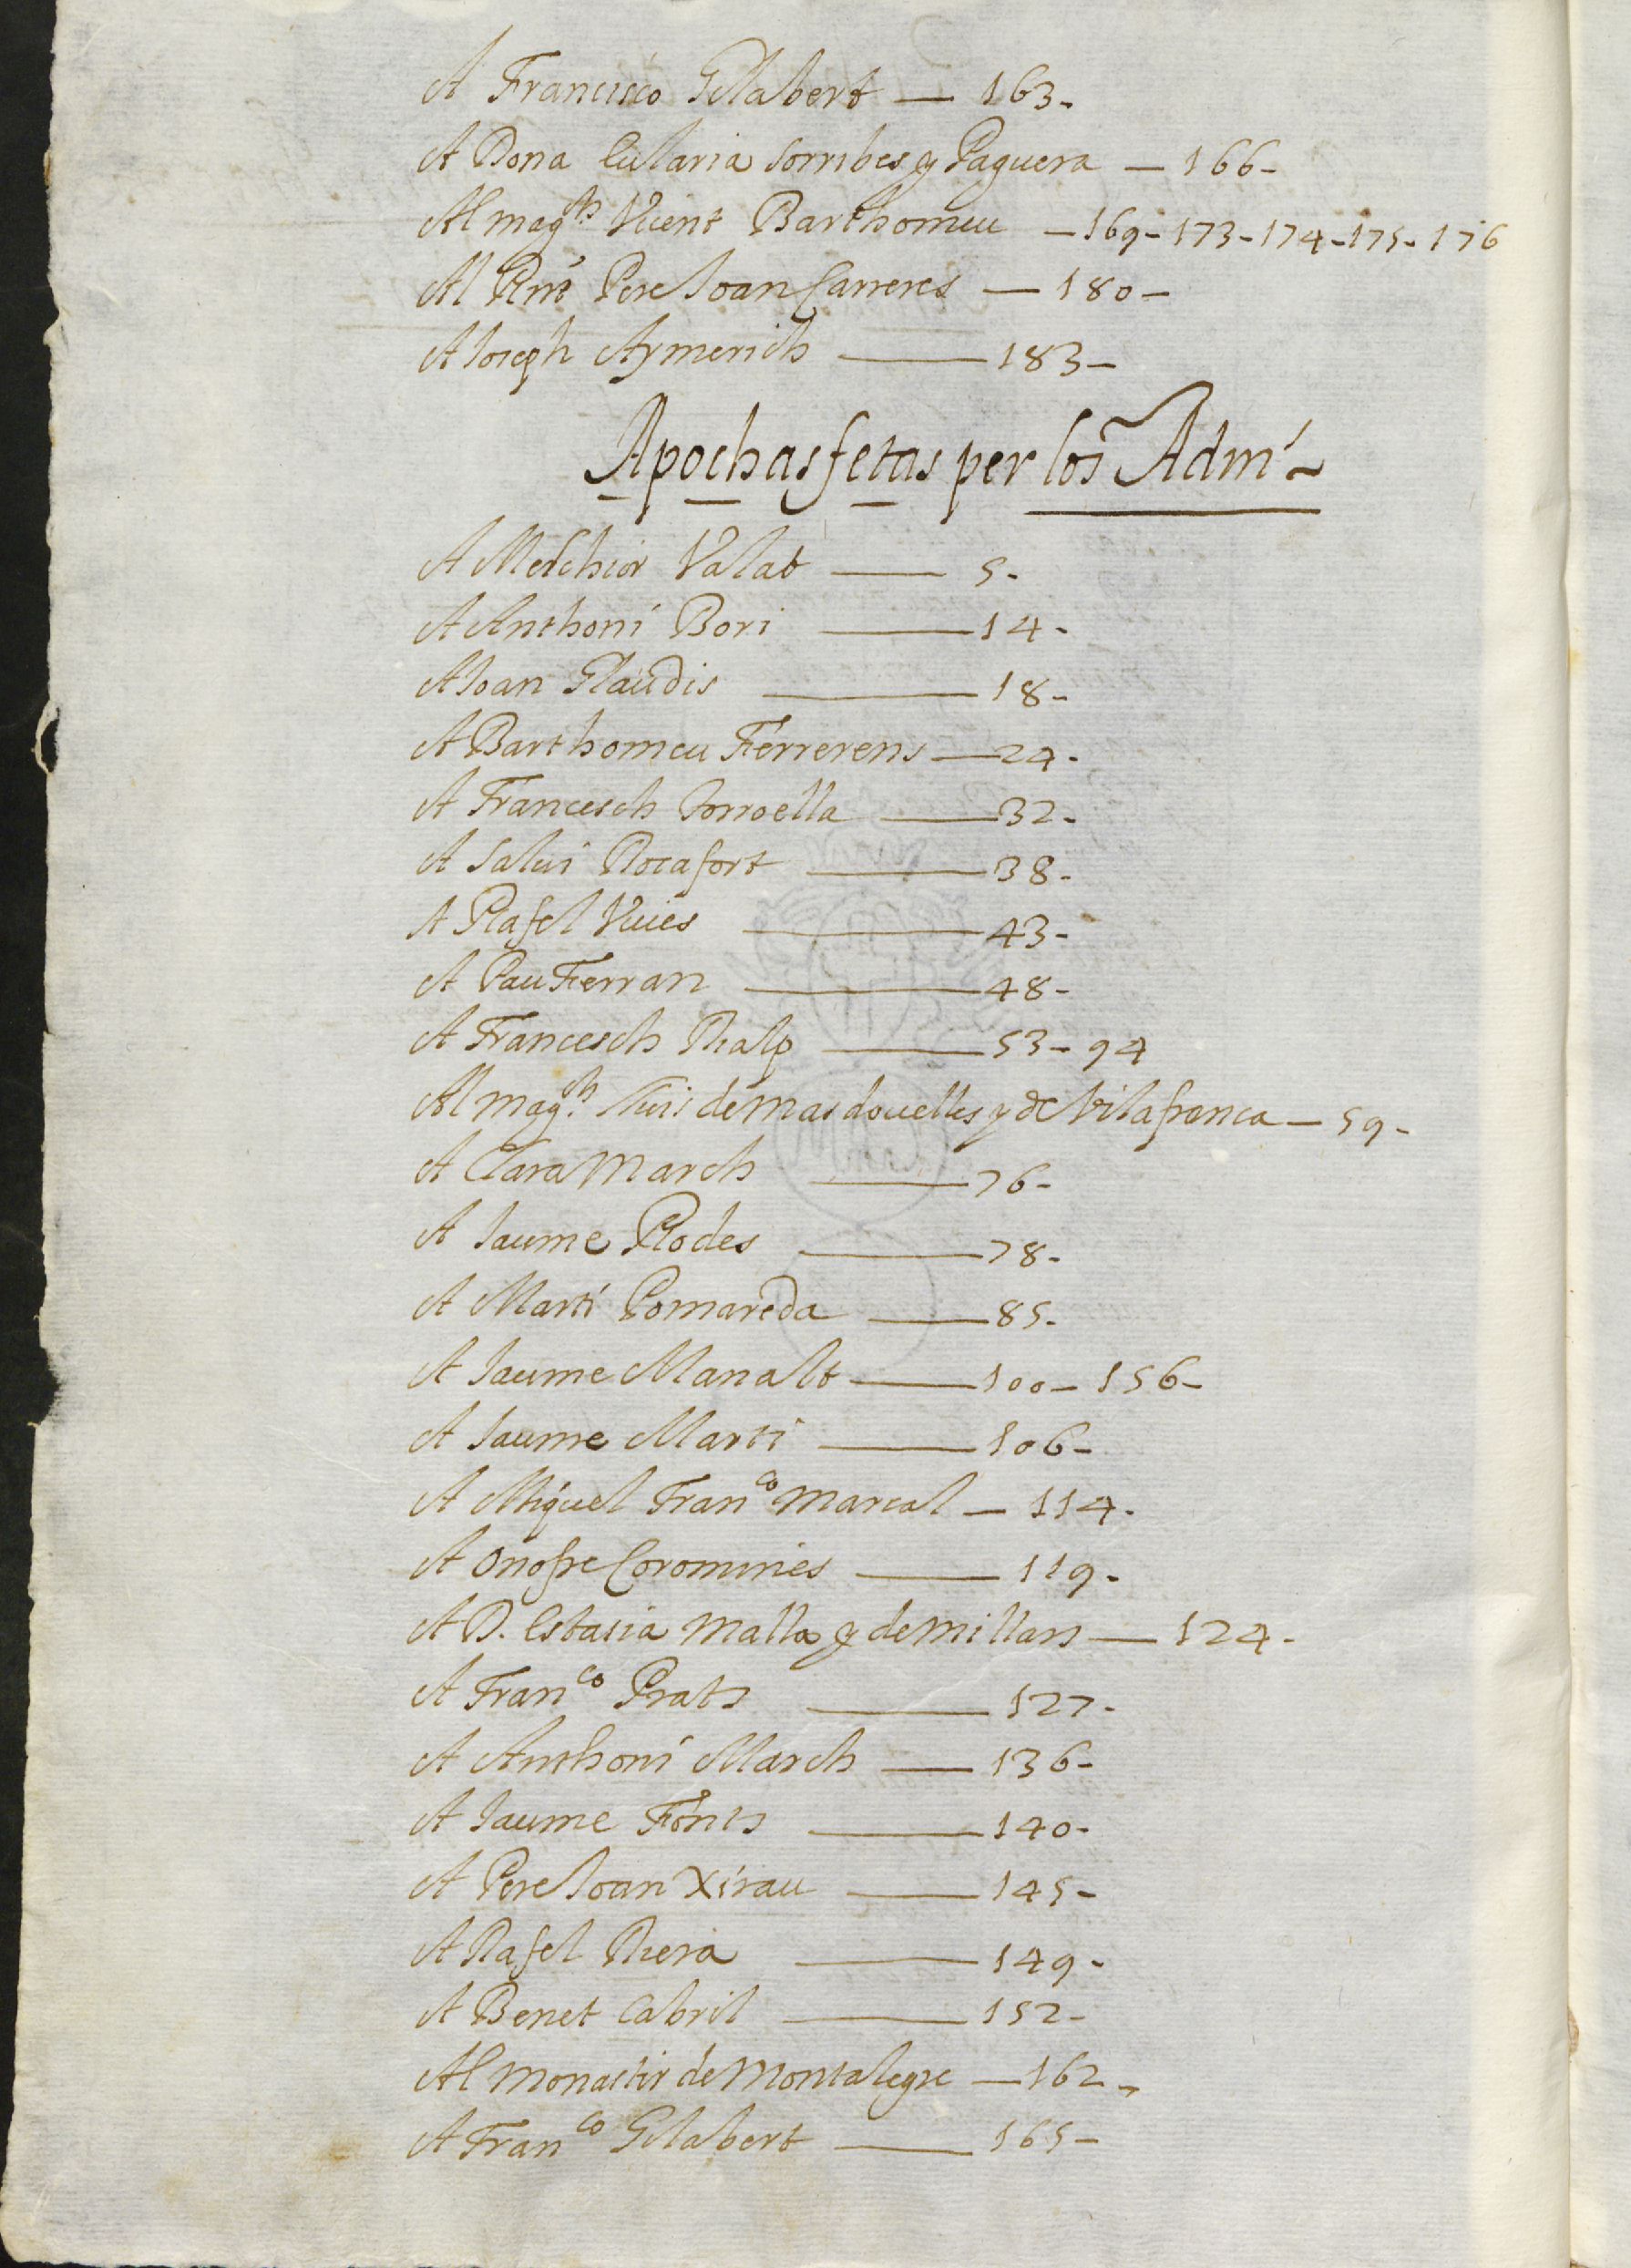 A Francisco Gelabert — 163-
A Dona Eularia Sorribes y Paguera — 166-
Al mag.ch Vicent Barthomeu — 169- 173- 174- 175- 176
Al Rnt Pere Joan Carreres — 180-
A Joseph Aymerich — 183-
Apochas fetas per los Adm.
A Melchior Valat — 5-
A Anthoni Bori — 14-
A Joan Glaudis — 18-
A Barthomeu Ferrerens — 24-
A Francesch Torroella — 32-
A Salvi Rocafort — 38-
A Rafel Vives — 43-
A Pau Ferran — 48-
A Francesch Rialp — 53- 94
Al mag.ch Luis de masdouelles y de Vilafranca — 59-
A Clara March — 76-
A Jaume Rodes — 78-
A Marti Pomareda — 85-
A Jaume Manalt — 100- 156-
A Jaume Marti — 106-
A Miquel Franco Marcal — 114-
A Onofre Coromines — 119-
A D. Estasia Malla y de Millars — 124-
A Franco Prats — 127-
A Anthoni March — 136-
A Jaume Fonts — 140-
A Pere Joan Xirau — 145-
A Rafel Riera — 149-
A Benet Cabril — 152-
Al Monastir de Montalegre — 162-
A Franco Gelabert — 165-